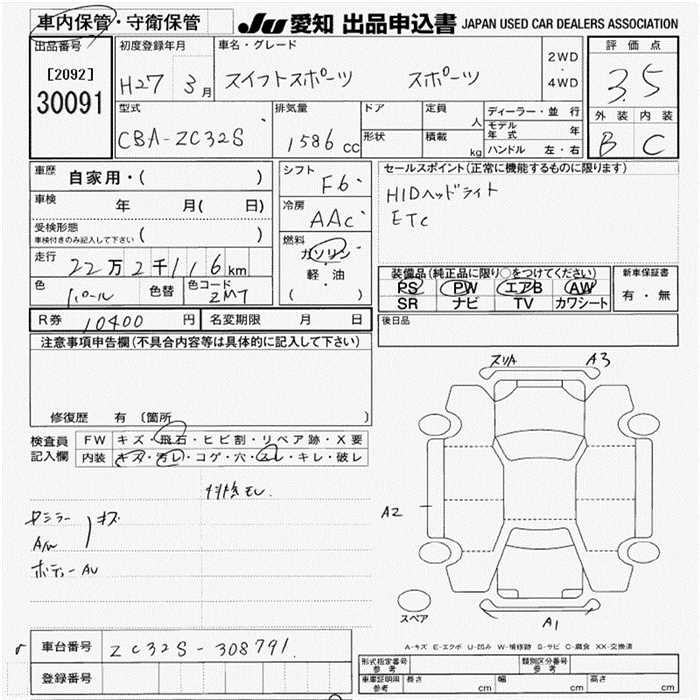 車内保管・守衛保管 JU 愛知 出品申込書 JAPAN USED CAR DEALERS ASSOCIATION
出品番号 初度登録年月 車名・グレード 評価点
[2092] H27 3月 スイフトスポーツ スポーツ 2WD・4WD 3.5
30091
型式 排気量 ドア 定員 人 ディーラー・並行 外装 内装
CBA-ZC32S 1586cc 形状 積載 kg モデル年式 年 B C
ハンドル 左・右
車歴 自家用・( ) シフト F6 セールスポイント(正常に機能するものに限ります)
車検 年 月( 日) 冷房 AAC HIDヘッドライト
受検形態 ( ) ETC
車検付きのみ記入して下さい
走行 22万2千116km 燃料 ガソリン・軽油 ( )
色 パール 色替 色コード ZM7
装備品(純正品に限り○をつけてください) 新車保証書
PS PW エアB AW 有・無
SR ナビ TV カワシート
R券 10400円 名変期限 月 日 後日品
注意事項申告欄(不具合内容等は具体的に記入して下さい)
修復歴 有 〔箇所 〕
検査員記入欄 FW キズ・飛石・ヒビ割・リペア跡・X要
内装 キズ・汚レ・コゲ・穴・スレ・キレ・破レ
キズ
A/W
ボディーAU
スリA A3
A2
A1
スペア
A-キズ E-エクボ U-凹み W-補修跡 S-サビ C-腐食 XX-交換済
車台番号 ZC32S-308791
登録番号
形式指定番号 参考 類別区分番号 参考
車庫証明用 参考 長さ cm 幅 cm 高さ cm